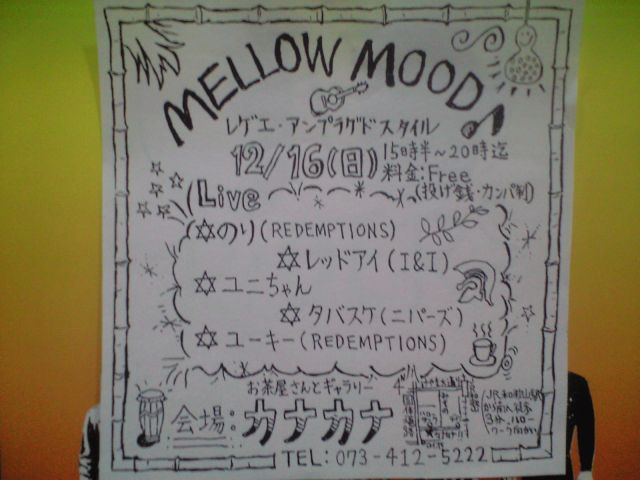 MELLOW MOOD
レゲエ・アンプラグドスタイル
12/16(日) 15時半～20時迄
料金:Free
(投げ銭・カンパ制)
Live
のり(REDEMPTIONS)
レッドアイ(I&I)
ユニちゃん
タバスケ(ニバーズ)
ユーキー(REDEMPTIONS)
お茶屋さんとギャラリー
会場:カナカナ
JR和歌山駅
から
3分
TEL:073-412-5222